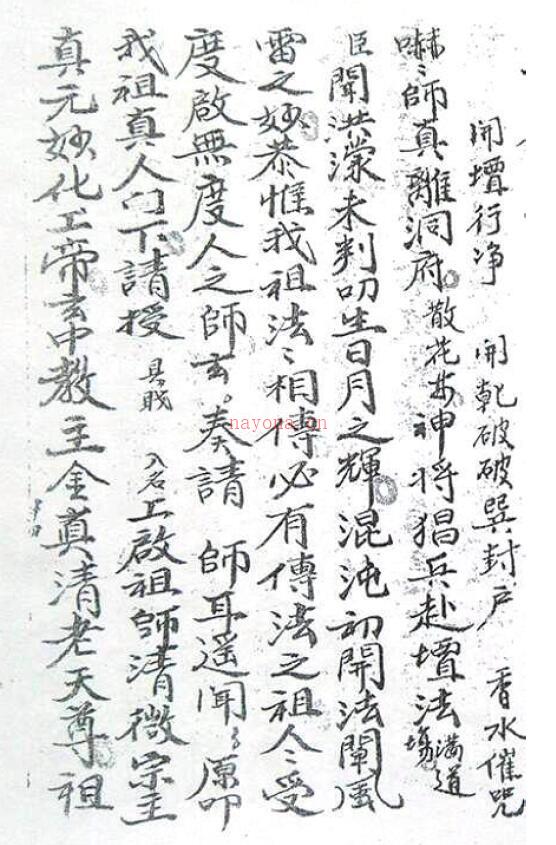 開壇行净 開乾破破巽封戸 香水催咒
嚇〻師真離洞府 散花女神将猖兵赴壇法 滿道場
臣聞洪濛未判叨生日月之輝混沌初開法闡風
雷之妙恭惟我祖法〻相傳必有傳法之祖人〻受
度啟無度人之師玄。奏請 師耳遥聞〻原叩
我祖真人門下請授 具职 入名 上啟祖師清微宗主
真元妙化上帝玄中教主金真清老天尊祖
nayona.cn